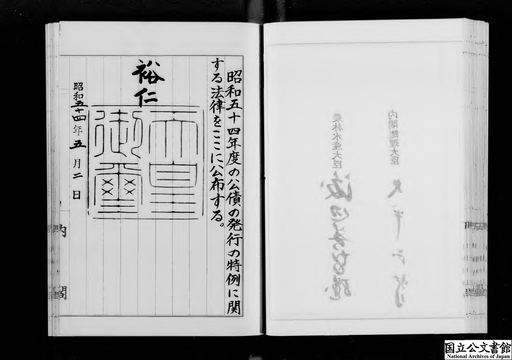 昭和五十四年度の公債の発行の特例に関
する法律をここに公布する。
裕仁
天皇
御璽
昭和五十四年五月二日
内閣
内閣総理大臣
農林水産大臣
国立公文書館
National Archives of Japan